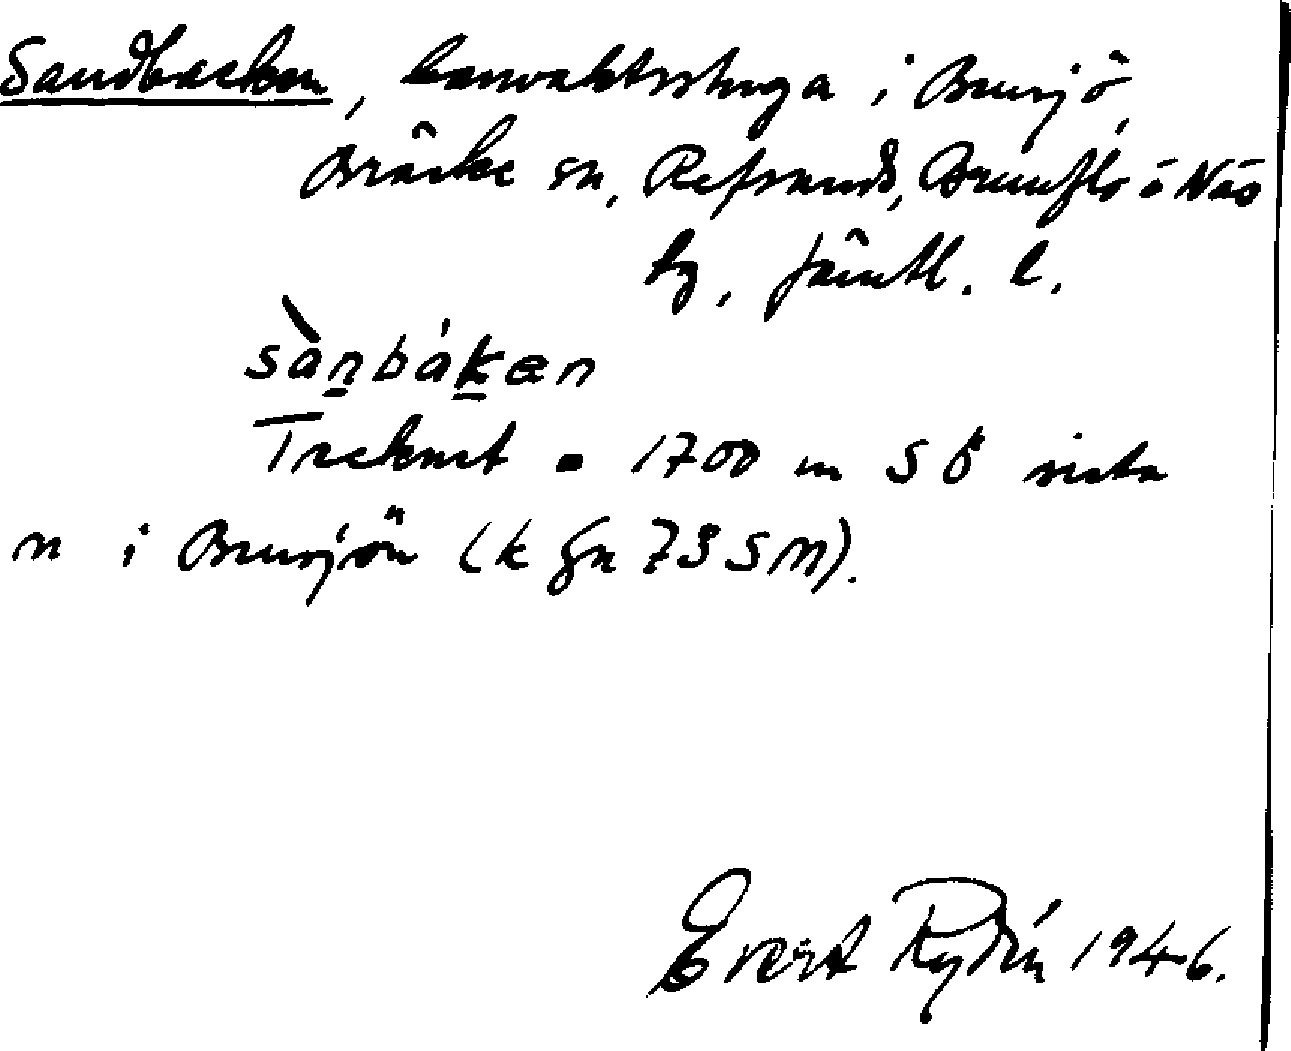 Sandbacken, banvaktsstuga i Bensjö,
Bräcke sn, Refsunds, Brunflo o Näs
tg, Jämtl. l.
sànbáken
Tecknet ▪ 1700 m SÖ sista
n i Bensjön (k gk 73 SM).
Evert Rydén 1946.